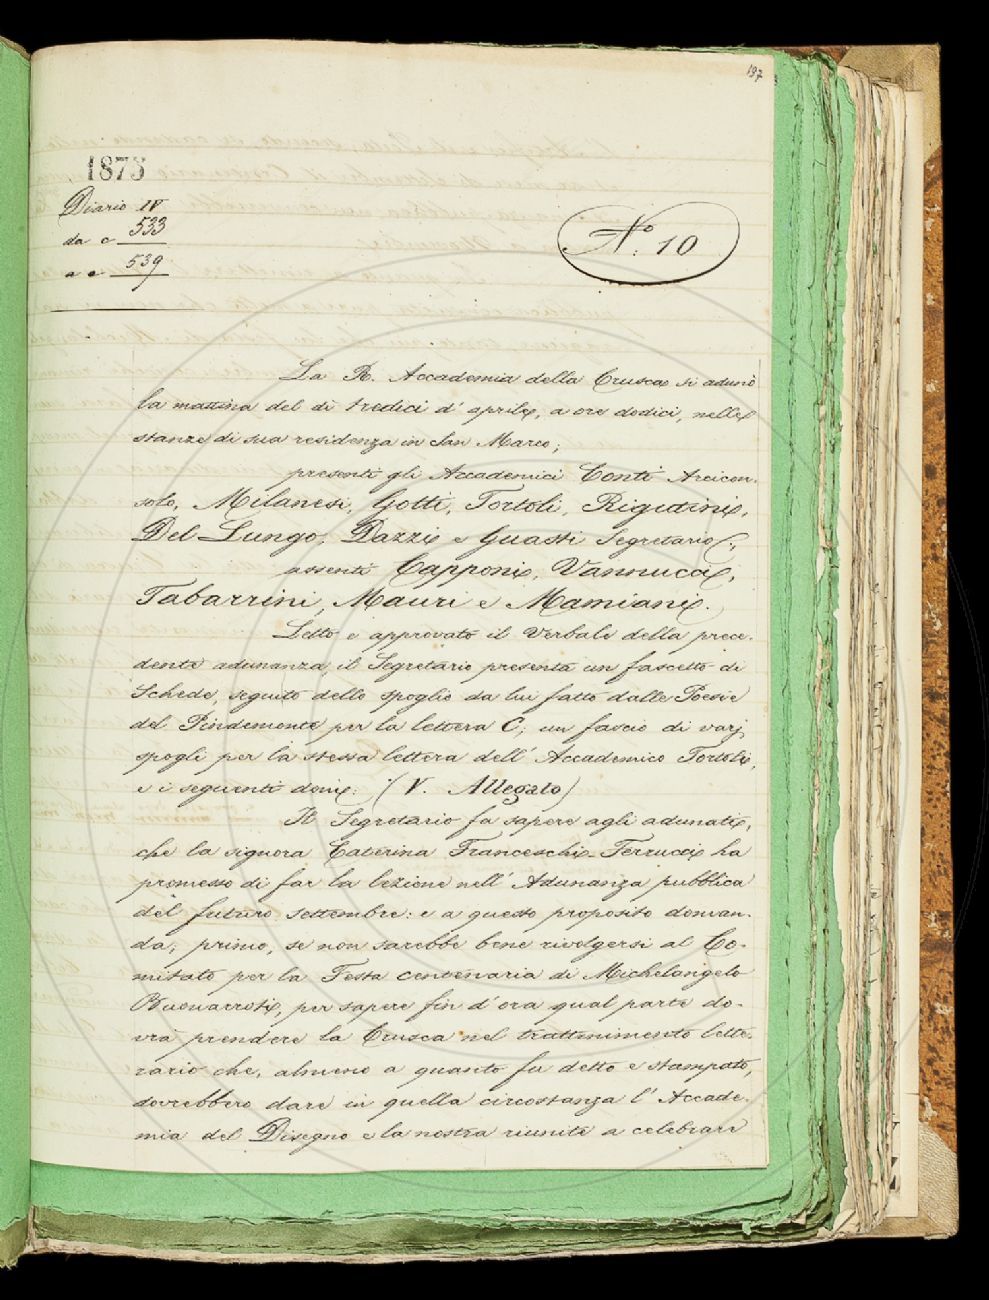 197
1875
Diario IV
da c 533
a c 539
N.° 10
La R. Accademia della Crusca si adunò
la mattina del dì tredici d'aprile, a ore dodici, nelle
stanze di sua residenza in San Marco;
presenti gli Accademici Conti Arcicon-
solo, Milanesi, Gotti, Tortoli, Rigutini,
Del Lungo, Dazzi e Guasti Segretario;
assenti Capponi, Vannucci,
Tabarrini, Mauri e Mamiani.
Letto e approvato il Verbale della prece-
dente adunanza, il Segretario presenta un fascetto di
Schede, seguito dello spoglio da lui fatto dalle Poesie
del Pindemonte per la lettera C; un fascio di varj
spogli per la stessa lettera dell'Accademico Tortoli,
e i seguenti doni: (V. Allegato)
Il Segretario fa sapere agli adunati,
che la signora Caterina Franceschi-Ferrucci ha
promesso di far la lezione nell'Adunanza pubblica
del futuro settembre: e a questo proposito doman-
da; primo, se non sarebbe bene rivolgersi al Co-
mitato per la Festa centenaria di Michelangelo
Buonarroti, per sapere fin d'ora qual parte do-
vrà prendere la Crusca nel trattenimento lette-
rario che, almeno a quanto fu detto e stampato,
dovrebbero dare in quella circostanza l'Accade-
mia del Disegno e la nostra riunite a celebrare